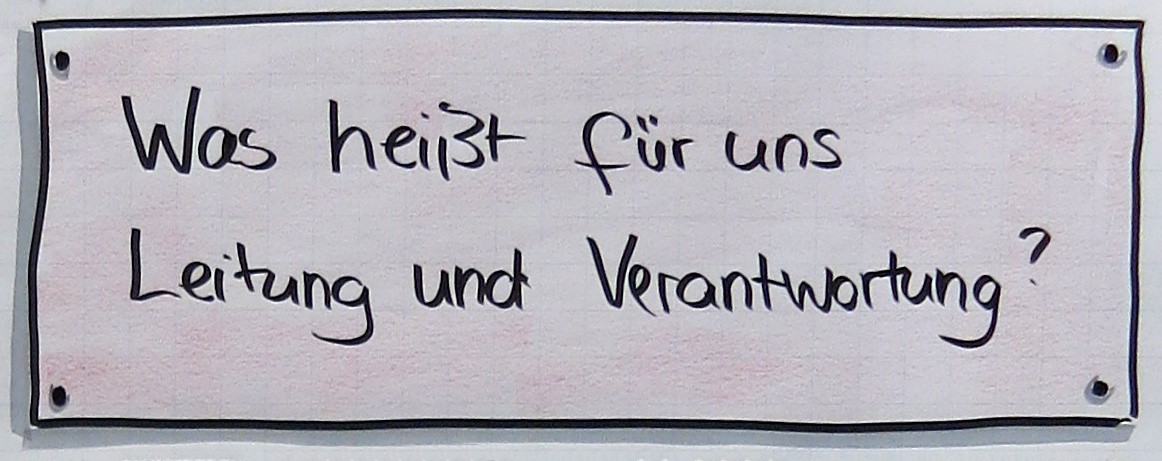 Was heißt für uns
Leitung und Verantwortung?